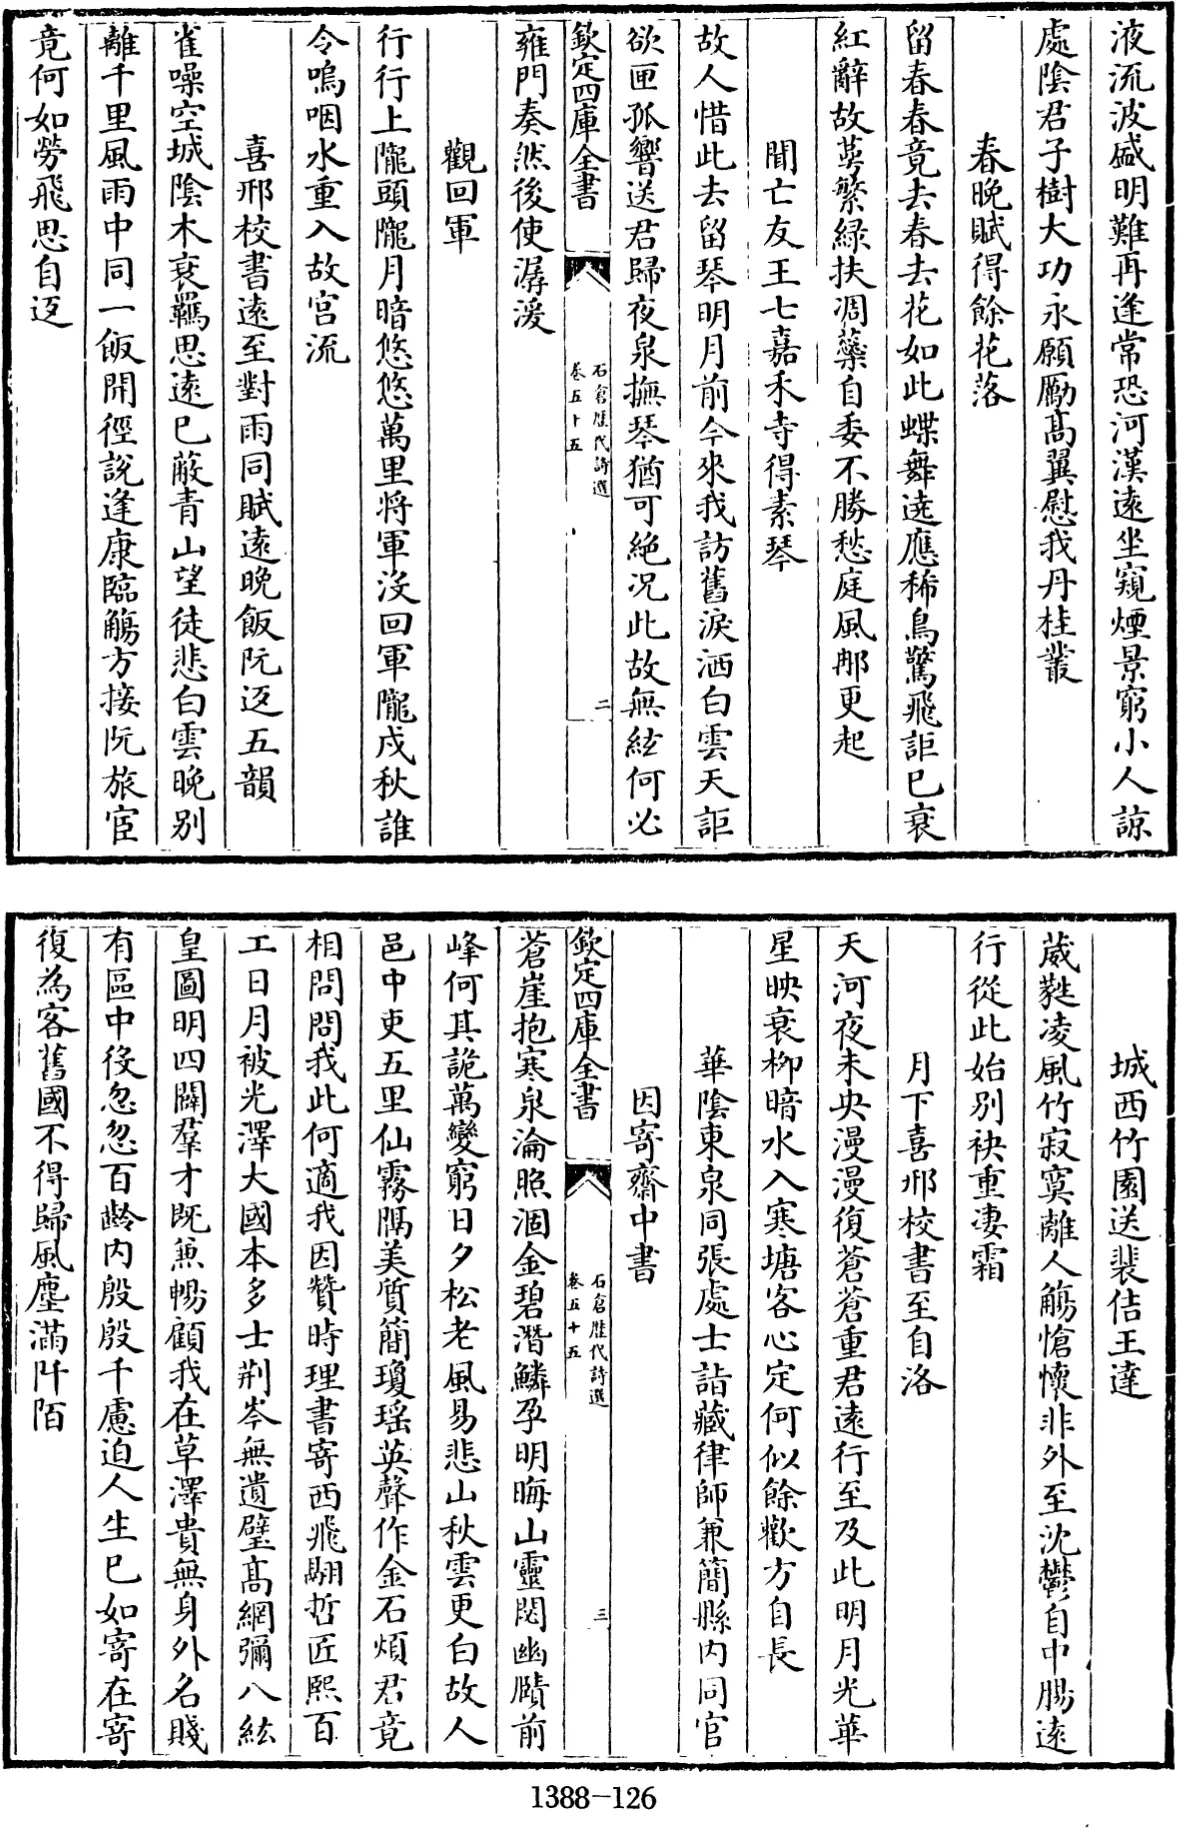 液流波盛明難再逢常恐河漢遠坐窺煙景窮小人諒
處陰君子樹大功永願勵高翼慰我丹桂叢
春晚賦得餘花落
留春春竟去春去花如此蝶舞遶應稀鳥驚飛詎已衰
紅辭故萼繁綠扶凋蘂自委不勝愁庭風那更起
聞亡友王七嘉禾寺得素琴
故人惜此去留琴明月前今來我訪舊淚洒白雲天詎
欲匣孤響送君歸夜泉撫琴猶可絶况此故無絃何必
欽定四庫全書
石倉歷代詩選
卷五十五
二
雍門奏然後使潺湲
觀回軍
行行上隴頭隴月暗悠悠萬里將軍沒回軍隴戍秋誰
令嗚咽水重入故宫流
喜邢校書遠至對雨同賦遠晚飯阮返五韻
雀噪空城陰木衰羈思遠已蔽青山望徒悲白雲晚别
離千里風雨中同一飯開徑說逢康臨觴方接阮旅宦
竟何如勞飛思自返
城西竹園送裴佶王達
葳蕤凌風竹寂寞離人觴愴懷非外至沈鬱自中腸遠
行從此始别袂重凄霜
月下喜邢校書至自洛
天河夜未央漫漫復蒼蒼重君遠行至及此明月光華
星映衰栁暗水入寒塘客心定何似餘歡方自長
華陰東泉同張處士詣藏律師兼簡縣内同官
因寄齋中書
欽定四庫全書
石倉歷代詩選
卷五十五
三
蒼崖抱寒泉淪照涸金碧潛鱗孕明晦山靈閟幽賾前
峰何其詭萬變窮日夕松老風易悲山秋雲更白故人
邑中吏五里仙霧隔美質簡瓊瑶英聲作金石煩君竟
相問問我此何適我因贊時理書寄西飛翮哲匠熙百
工日月被光澤大國本多士荆岑無遺璧高網彌八紘
皇圖明四闢羣才既兼暢顧我在草澤貴無身外名賤
有區中役忽忽百齡内殷殷千慮迫人生已如寄在寄
復為客舊國不得歸風塵滿阡陌
1388-126